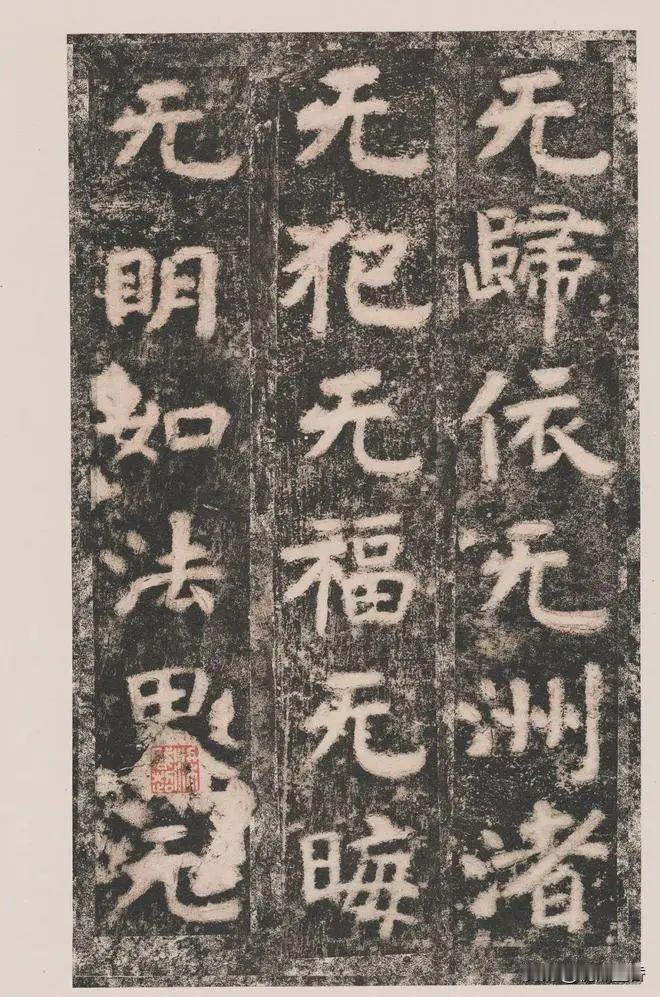 无歸依无洲渚
无犯无福无晦
无眀如法界无